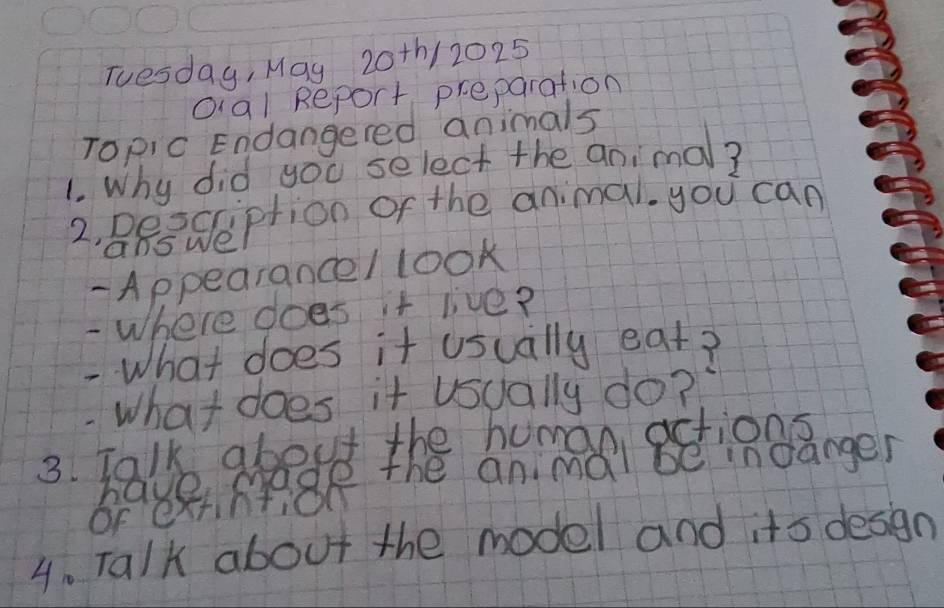 Tuesday, May 20th/2025
Oral Report preparation
Topic Endangered animals
1. Why did you select the animal?
2. Description of the animal. you can
answer
- Appearance/look
- Where does it live?
- What does it usually eat?
- What does it usually do?
3. Talk about the human actions
have made the animal be in danger
of extintion
4. Talk about the model and its design